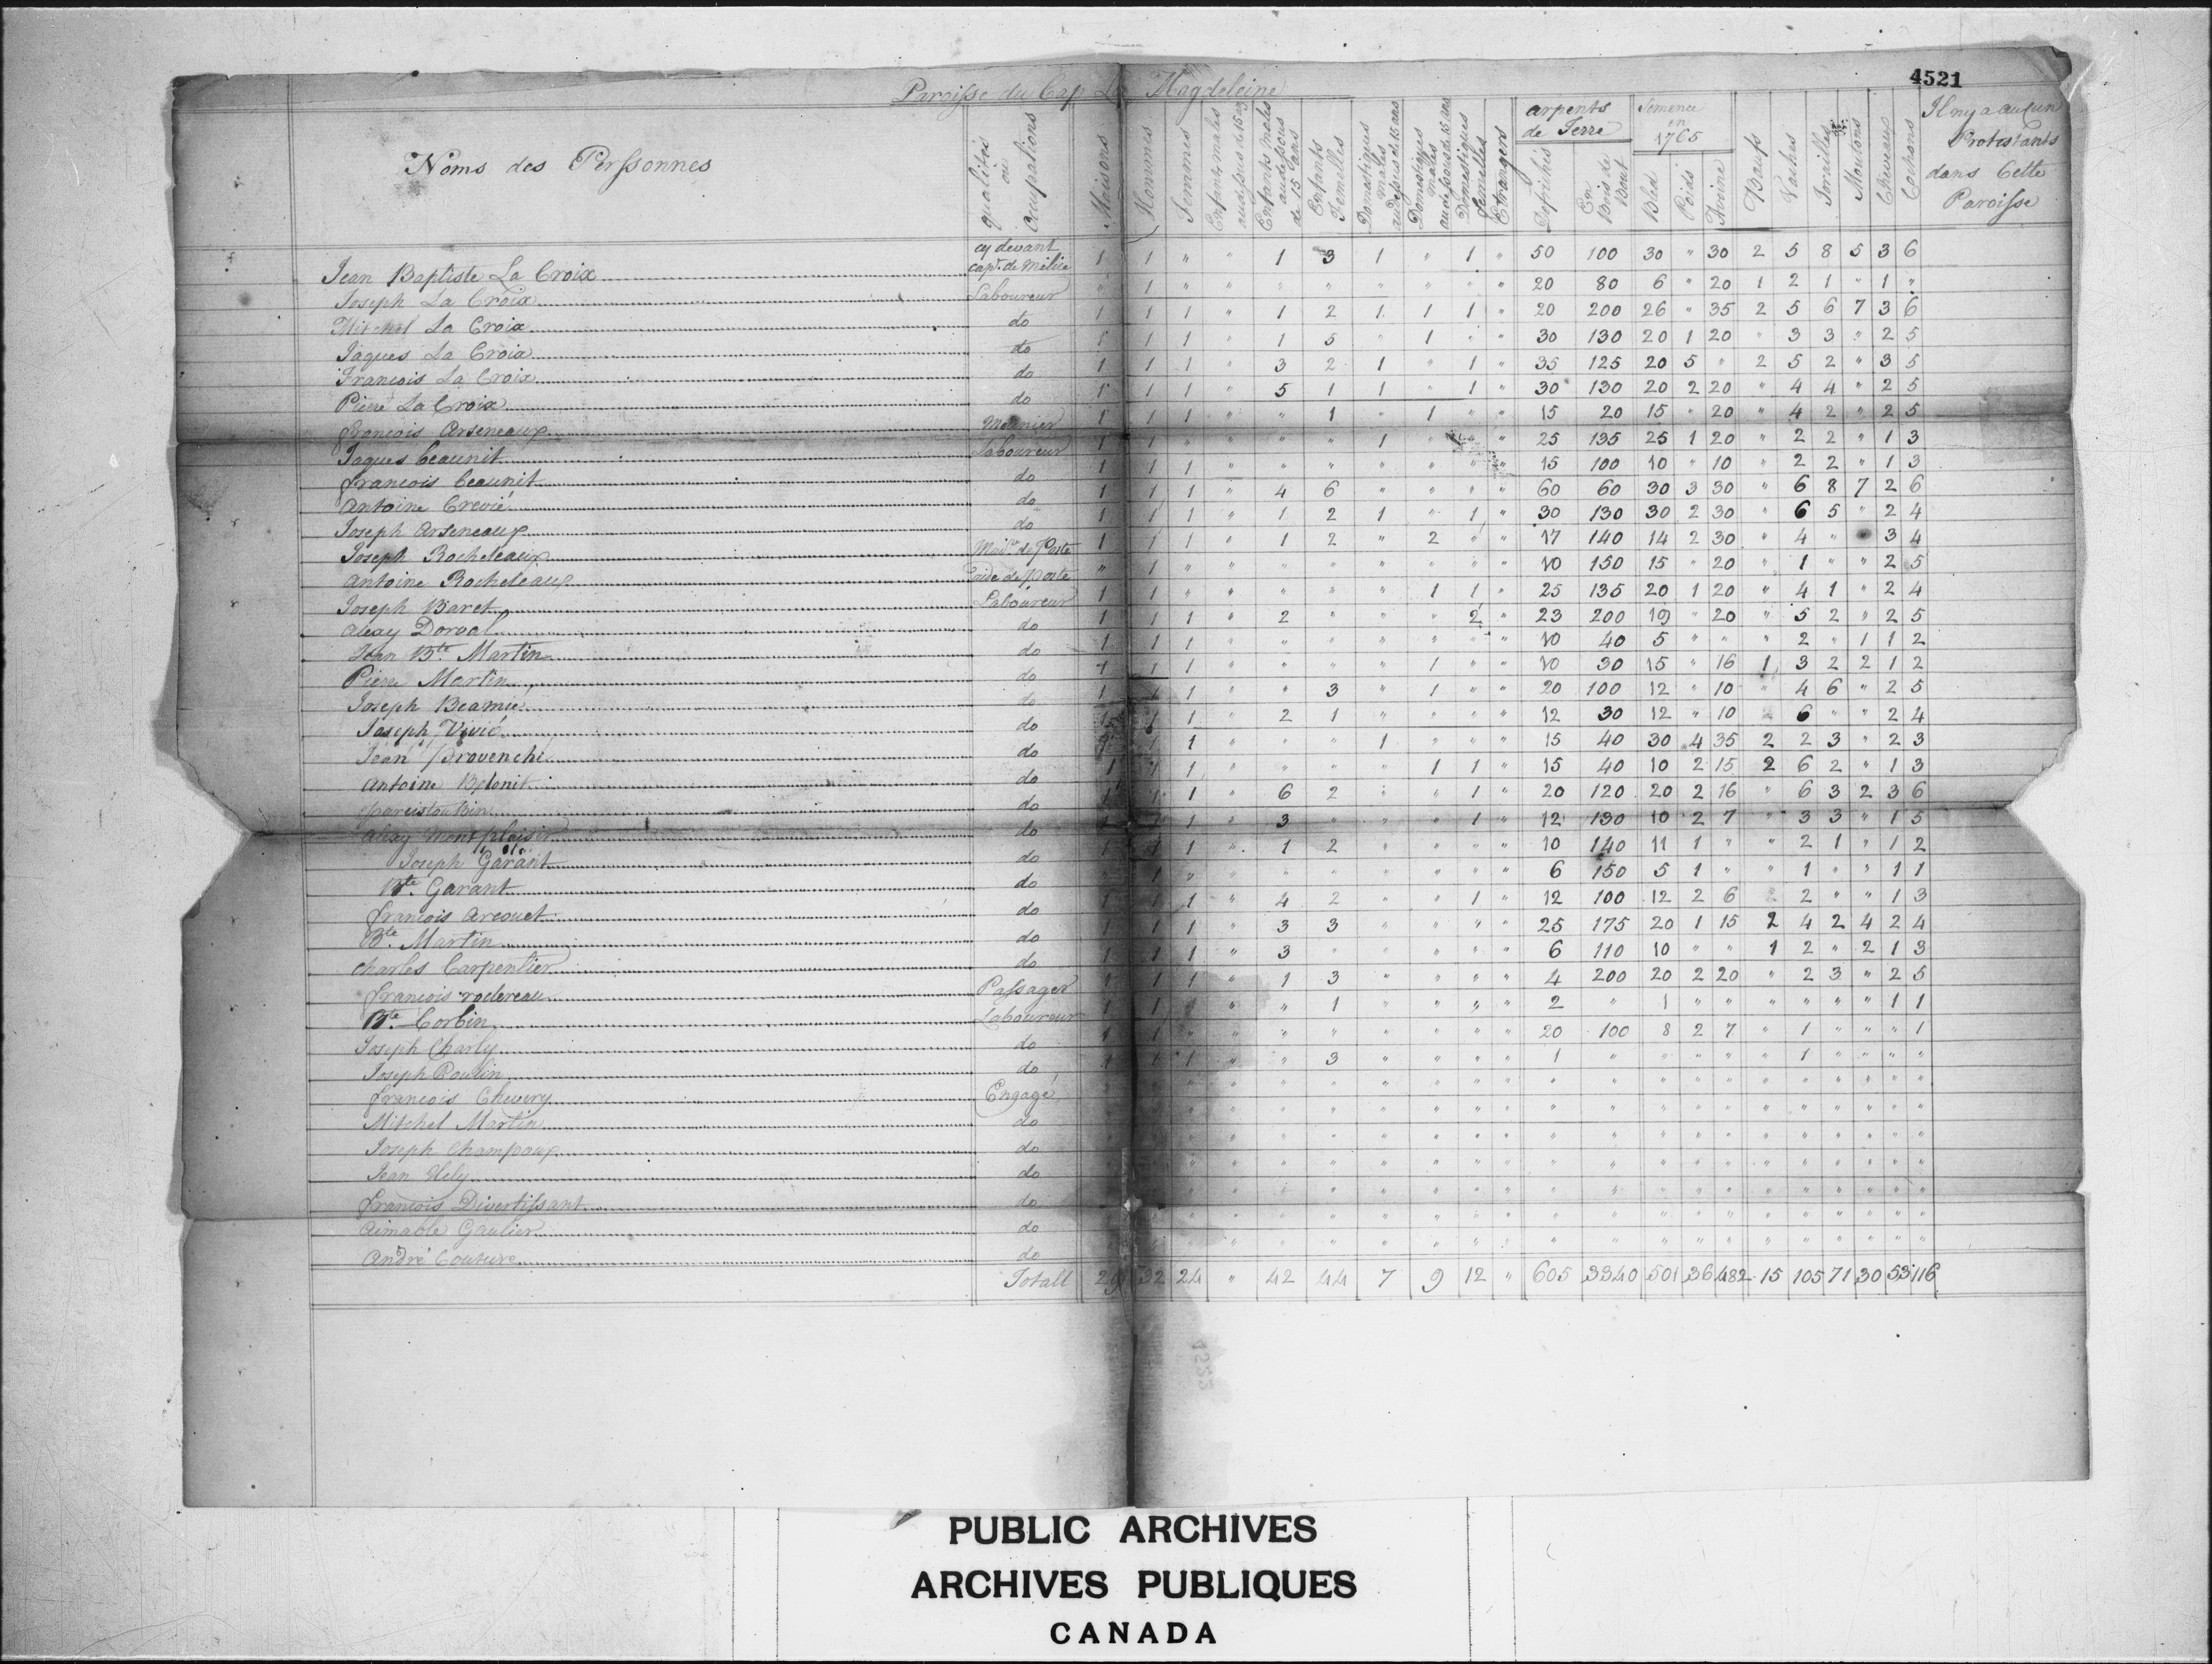 4521
Paroisse du Cap La Magdeleine
Noms des Perssonnes
qualités ou occupations
Maisons
Hommes
Femmes
Enfants males audessus de 15 ans
Enfants Males audessous de 15 ans
Enfants Femelles
Domestiques Males audessus de 15 ans
Domestiques males audessous de 15 ans
Domestiques Femelles
Etrangers
arpents de Terre
Defrichés
En Bois de Bout
Semence en 1765
Bled
Poids
Avoine
Bœufs
Vaches
Torailles
Moutons
Cheveaux
Cochons
Il ny a aucun Protestants dans Cette Paroisse
Jean Baptiste La Croix cy devant capt. de Milice 1 1 " " 1 3 1 " 1 " 50 100 30 " 30 2 5 8 5 3 6
Joseph La Croix Laboureur " 1 " " " " " " " " 20 80 6 " 20 1 2 1 " 1 "
Mitchel La Croix do 1 1 1 " 1 2 1 1 1 " 20 200 26 " 35 2 5 6 7 3 6
Jaques La Croix do 1 1 1 " 1 5 " 1 " " 30 130 20 1 20 " 3 3 " 2 5
Francois La Croix do 1 1 1 " 3 2 1 " 1 " 35 125 20 5 " 2 5 2 " 3 5
Pierre La Croix do 1 1 1 " 5 1 1 " 1 " 30 130 20 2 20 " 4 4 " 2 5
francois Arseneaux Meunier 1 1 1 " " 1 " 1 " " 15 20 15 " 20 " 4 2 " 2 5
Jaques beaunit Laboureur 1 1 " " " " 1 " " 25 135 25 1 20 " 2 2 " 1 3
francois beaunit do 1 1 1 " " " " " " " 15 100 10 " 10 " 2 2 " 1 3
Antoine Crevié do 1 1 1 " 4 6 " " " " 60 60 30 3 30 " 6 8 7 2 6
Joseph Arseneaux do 1 1 1 " 1 2 1 " 1 " 30 130 30 2 30 " 6 5 " 2 4
Joseph Rocheleaux Mai.re de Poste 1 1 1 " 1 2 " 2 " " 17 140 14 2 30 " 4 " 3 4
Antoine Rocheleaux aide de Poste " 1 " " " " " " " " 10 150 15 " 20 " 1 " " 2 5
Joseph Baret Laboureur 1 1 " " " " " 1 1 " 25 135 20 1 20 " 4 1 " 2 4
Alexy Dorval do 1 1 1 " 2 " " " 2 " 23 200 19 " 20 " 5 2 " 2 5
Jean Bte. Martin do 1 1 1 " " " " " " " 10 40 5 " " " 2 " 1 1 2
Pierre Martin do 1 1 1 " " " " 1 " " 10 30 15 " 16 1 3 2 2 1 2
Joseph Beamie do 1 1 1 " " 3 " 1 " " 20 100 12 " 10 " 4 6 " 2 5
Joseph Vivié do 1 1 1 " 2 1 " " " " 12 30 12 " 10 6 " " 2 4
Jean Provenché do 1 1 " " " 1 " " " 15 40 30 4 35 2 2 3 " 2 3
Antoine do 1 1 1 " " " " 1 1 " 15 40 10 2 15 2 6 2 " 1 3
do 1 1 1 " 6 2 " " 1 " 20 120 20 2 16 " 6 3 2 3 6
Alexy Montplaisir do 1 1 1 " 3 " " " 1 " 12 130 10 2 7 " 3 3 " 1 5
Joseph Garant do 1 1 1 " 1 2 " " " " 10 140 11 1 " " 2 1 " 1 2
Bte. Garant do 1 " " " " " " " " 6 150 5 1 " " 1 " " 1 1
francois Arcouet do 1 1 1 " 4 2 " " 1 " 12 100 12 2 6 2 " " 1 3
Bte. Martin do 1 1 1 " 3 3 " " " " 25 175 20 1 15 2 4 2 4 2 4
Charles Carpentier do 1 1 1 " 3 " " " " " 6 110 10 " " 1 2 " 2 1 3
francois rochereau Passager 1 1 1 " 1 3 " " " " 4 200 20 2 20 " 2 3 " 2 5
Bte. Corbin Laboureur 1 1 1 " " 1 " " " " 2 " 1 " " " " " " 1 1
Joseph Charly do 1 1 " " " " " " " " 20 100 8 2 7 " 1 " " " 1
Joseph Poulin do 1 1 1 " " 3 " " " " 1 " " " " " 1 " " " "
francois Chevery Engagé " " " " " " " " " " " " " " " " " " "
Mitchel Martin do " " " " " " " " " " " " " " " " " " "
Joseph Champoux do " " " " " " " " " " " " " " " " " " "
Jean Hely do " " " " " " " " " " " " " " " " " " "
francois Divertissant do " " " " " " " " " " " " " " " " " " "
Aimable Gaulier do " " " " " " " " " " " " " " " " " " "
André Couture do " " " " " " " " " " " " " " " " " " "
Totall 29 32 24 " 42 44 7 9 12 " 605 3340 501 36 482 15 105 71 30 53 116
PUBLIC ARCHIVES
ARCHIVES PUBLIQUES
CANADA